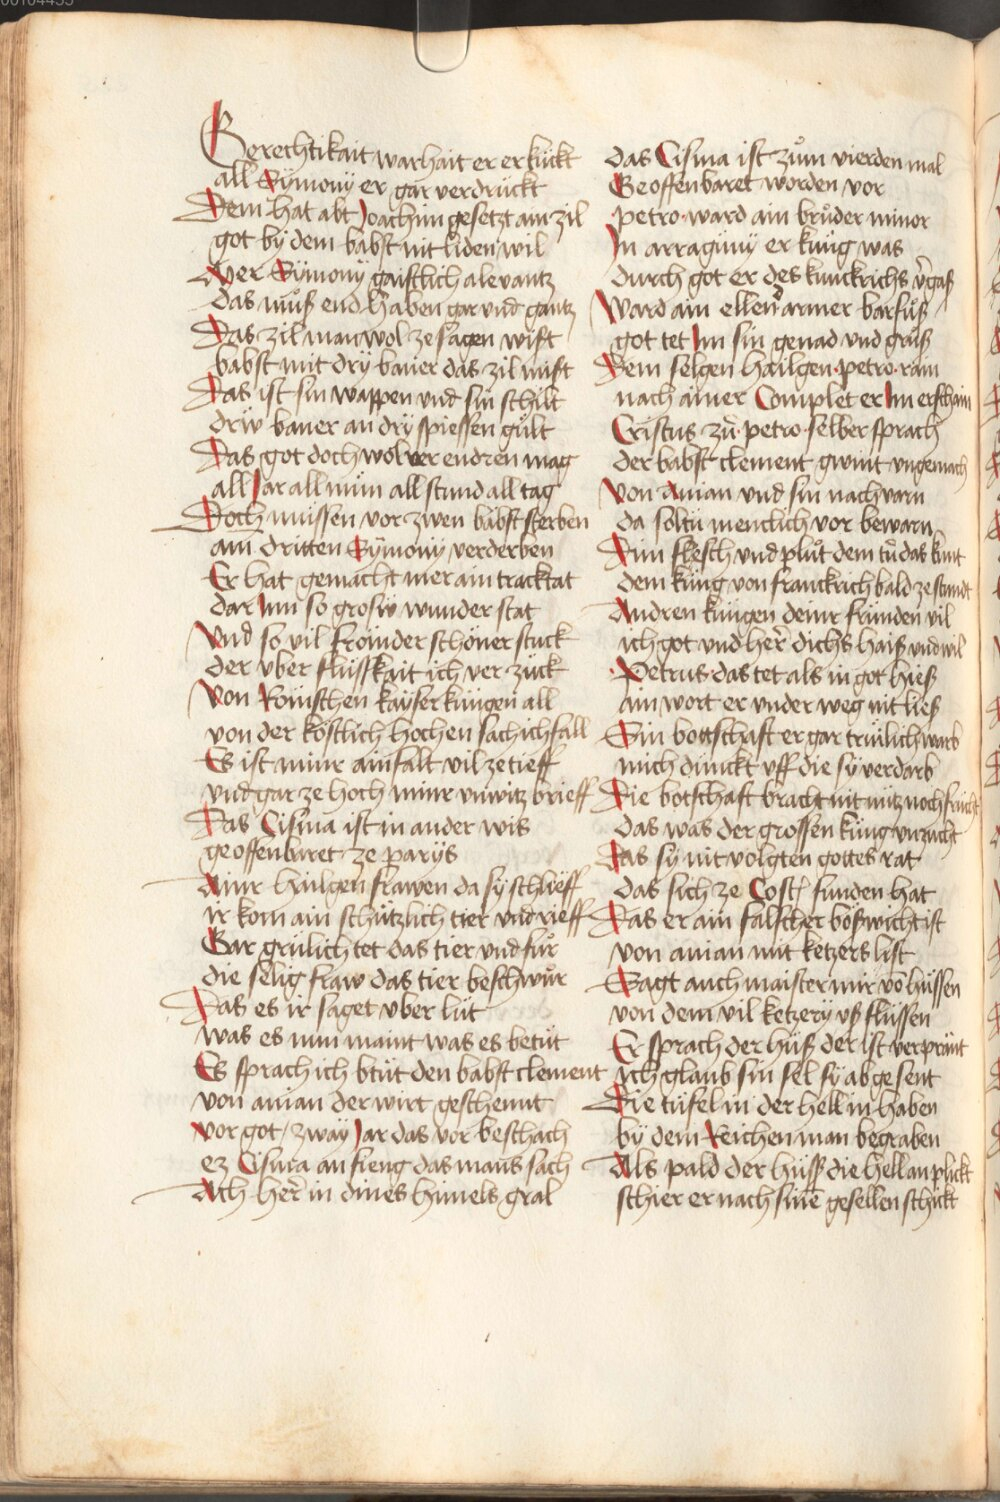 Gerechtikait warhait er erkückt
all Symony er gar verdrückt
Dem hat abt Joachim gesetzt ain zil
got by dem babst nit liden wil
Aber Symony gaistlich alevantz
das muß end haben gar vnd gantz
Das zil man wol ze sagen wist
babst mit dry baner das zil mist
Das ist sin wappen vnd sin schilt
dry baner an dry spiessen gult
Das got doch wol ver endren mag
all Jar all nun all stund all tag
Doch mussen vor zwen babst sterben
am dritten Symony verderben
Er hat gemacht mer ain tracktat
dar Inn so grosv wunder stat
Vnd so vil frömder schöner stuck
der vber flüsskait ich ver zück
Von Römschen kayser küngen all
von der köstlich hochen sach ich fall
Es ist miner ainfalt vil ze tieff
vnd gar ze hoch miner vnwitz brieff
Das Cisma ist in ander wis
geoffenbaret ze parys
Ainr hailgen frawen da sy schlieff
ir kom ain schützlich tier vnd rieff
Gar grülich tet das tier vnd für
die selig fraw das tier beschwür
Das es ir saget vber lüt
was es nun maint was es betüt
Es sprach ich btüt den babst clement
von auian der wirt geschennt
vor got / zway Jar das vor beschach
ez Cisma an fieng das mans sach
Ach her in dines himels gral
das Cisma ist zům vierden mal
Geoffenbaret worden vor
petro ward ain brůder minor
In arraguny er küng was
durch got er des kunckrichs vergaß
Ward ain ellender armer barfůß
got tet Im sin genad vnd grůß
Dem selgen hailgen petro rain
nach ainer Complet er Im erschain
Cristus zů petro selber sprach
der babst clement gwint vngemach
Von Auian vnd sin nachvarn
da soltu menclich vor bewarn
Dim flesch vnd plůt dem tů das kunt
dem küng von franckrich bald ze stundt
Andren küngen deinr fründen vil
ich got vnd her dichs haiß vnd wil
Petrus das tet als in got hieß
ain wort er vnder weg nit ließ
Sin bottschaft er gar trülich warb
mich dunckt vff die sy verdarb
Die botschaft bracht nit nütz noch frücht
das was der grossen küng vnzucht
Das sy nit volgten gottes rat
das sich ze Cost funden hat
Das er ain falscher bößwicht ist
von auian mit ketzers list
Sagt auch maister mir vō hüssen
von dem vil ketzery vß flüssen
Er sprach der hüß der ist verpränt
ich glaub sin sel sy ab gesent
Die tüfel in der hell in haben
by dem Reichen man begraben
Als pald der hüss die hell an plickt
schier er nach sinē gesellen schickt